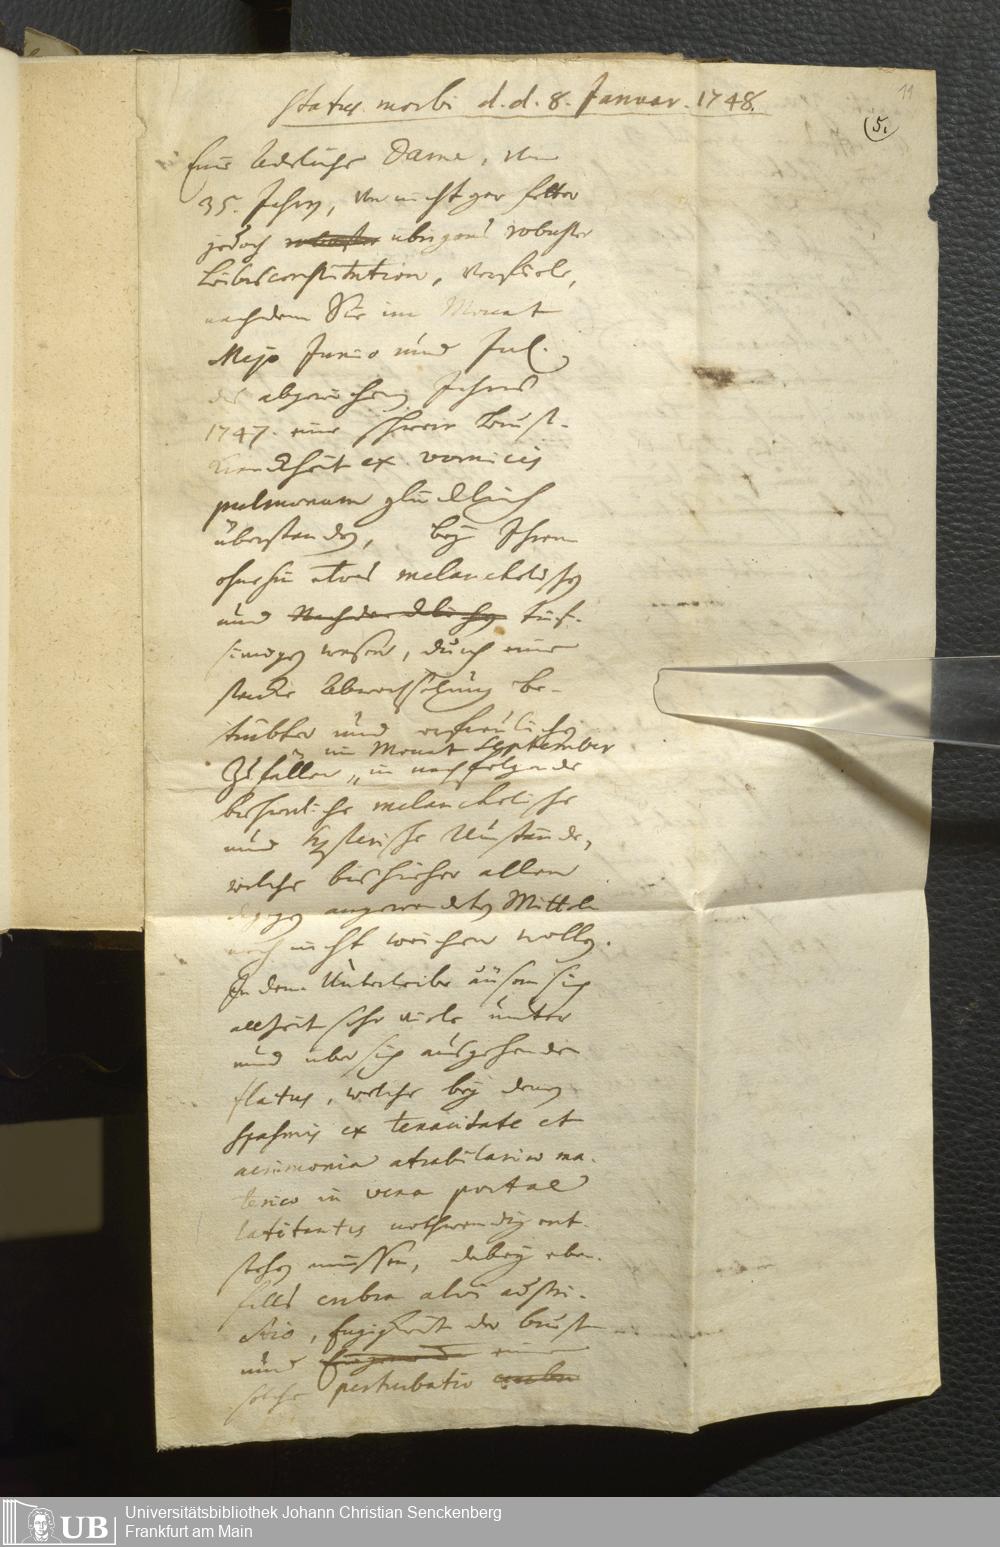 11
Status morbi d. d. 8. Januar. 1748.
(5.
Eine Adeliche Dame, von
35. Jahren, von nicht gar fetter
jedoch robuster übrigens robuster
Leibsconstitution, verfiele,
nachdem Sie im Monat
Majo Junio und Jul.
des abgewichenen Jahres
1747. eine schwere Brust-
kranckheit ex vomicis
pulmonum glücklich
überstanden, bey Ihrem
ohnehin etwas melancholischen
und tief-
sinnigen wesen, durch eine
starcke Abwechselung be-
trübter und erfreulicher
im Monat September
Zufällen, in nachfolgende
melancholische
und hysterische Umstände,
welche bishieher allen
dagegen angewendeten Mitteln
noch nicht weichen wollen.
In dem Unterleibe äusern sich
allzeit sehr viele unter
und uber sich ausgehende
flatus, welche bey denen
Spasmis ex tenacitate et
acrimonia atrabilarico ma-
terico in vena portae
latitantis nothwendig ent-
stehen müssen, dabey eben-
falls crebra alvi adstri-
ctio, Engigkeit der Brust
und eine
solche perturbatio
Universitätsbibliothek Johann Christian Senckenberg
Frankfurt am Main
UB